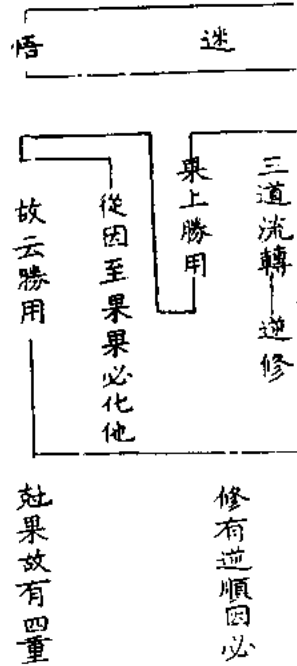 迷
悟
三道流轉—逆修
果上勝用
從因至果果必化他
故云勝用
修有逆順因必
尅果故有四重